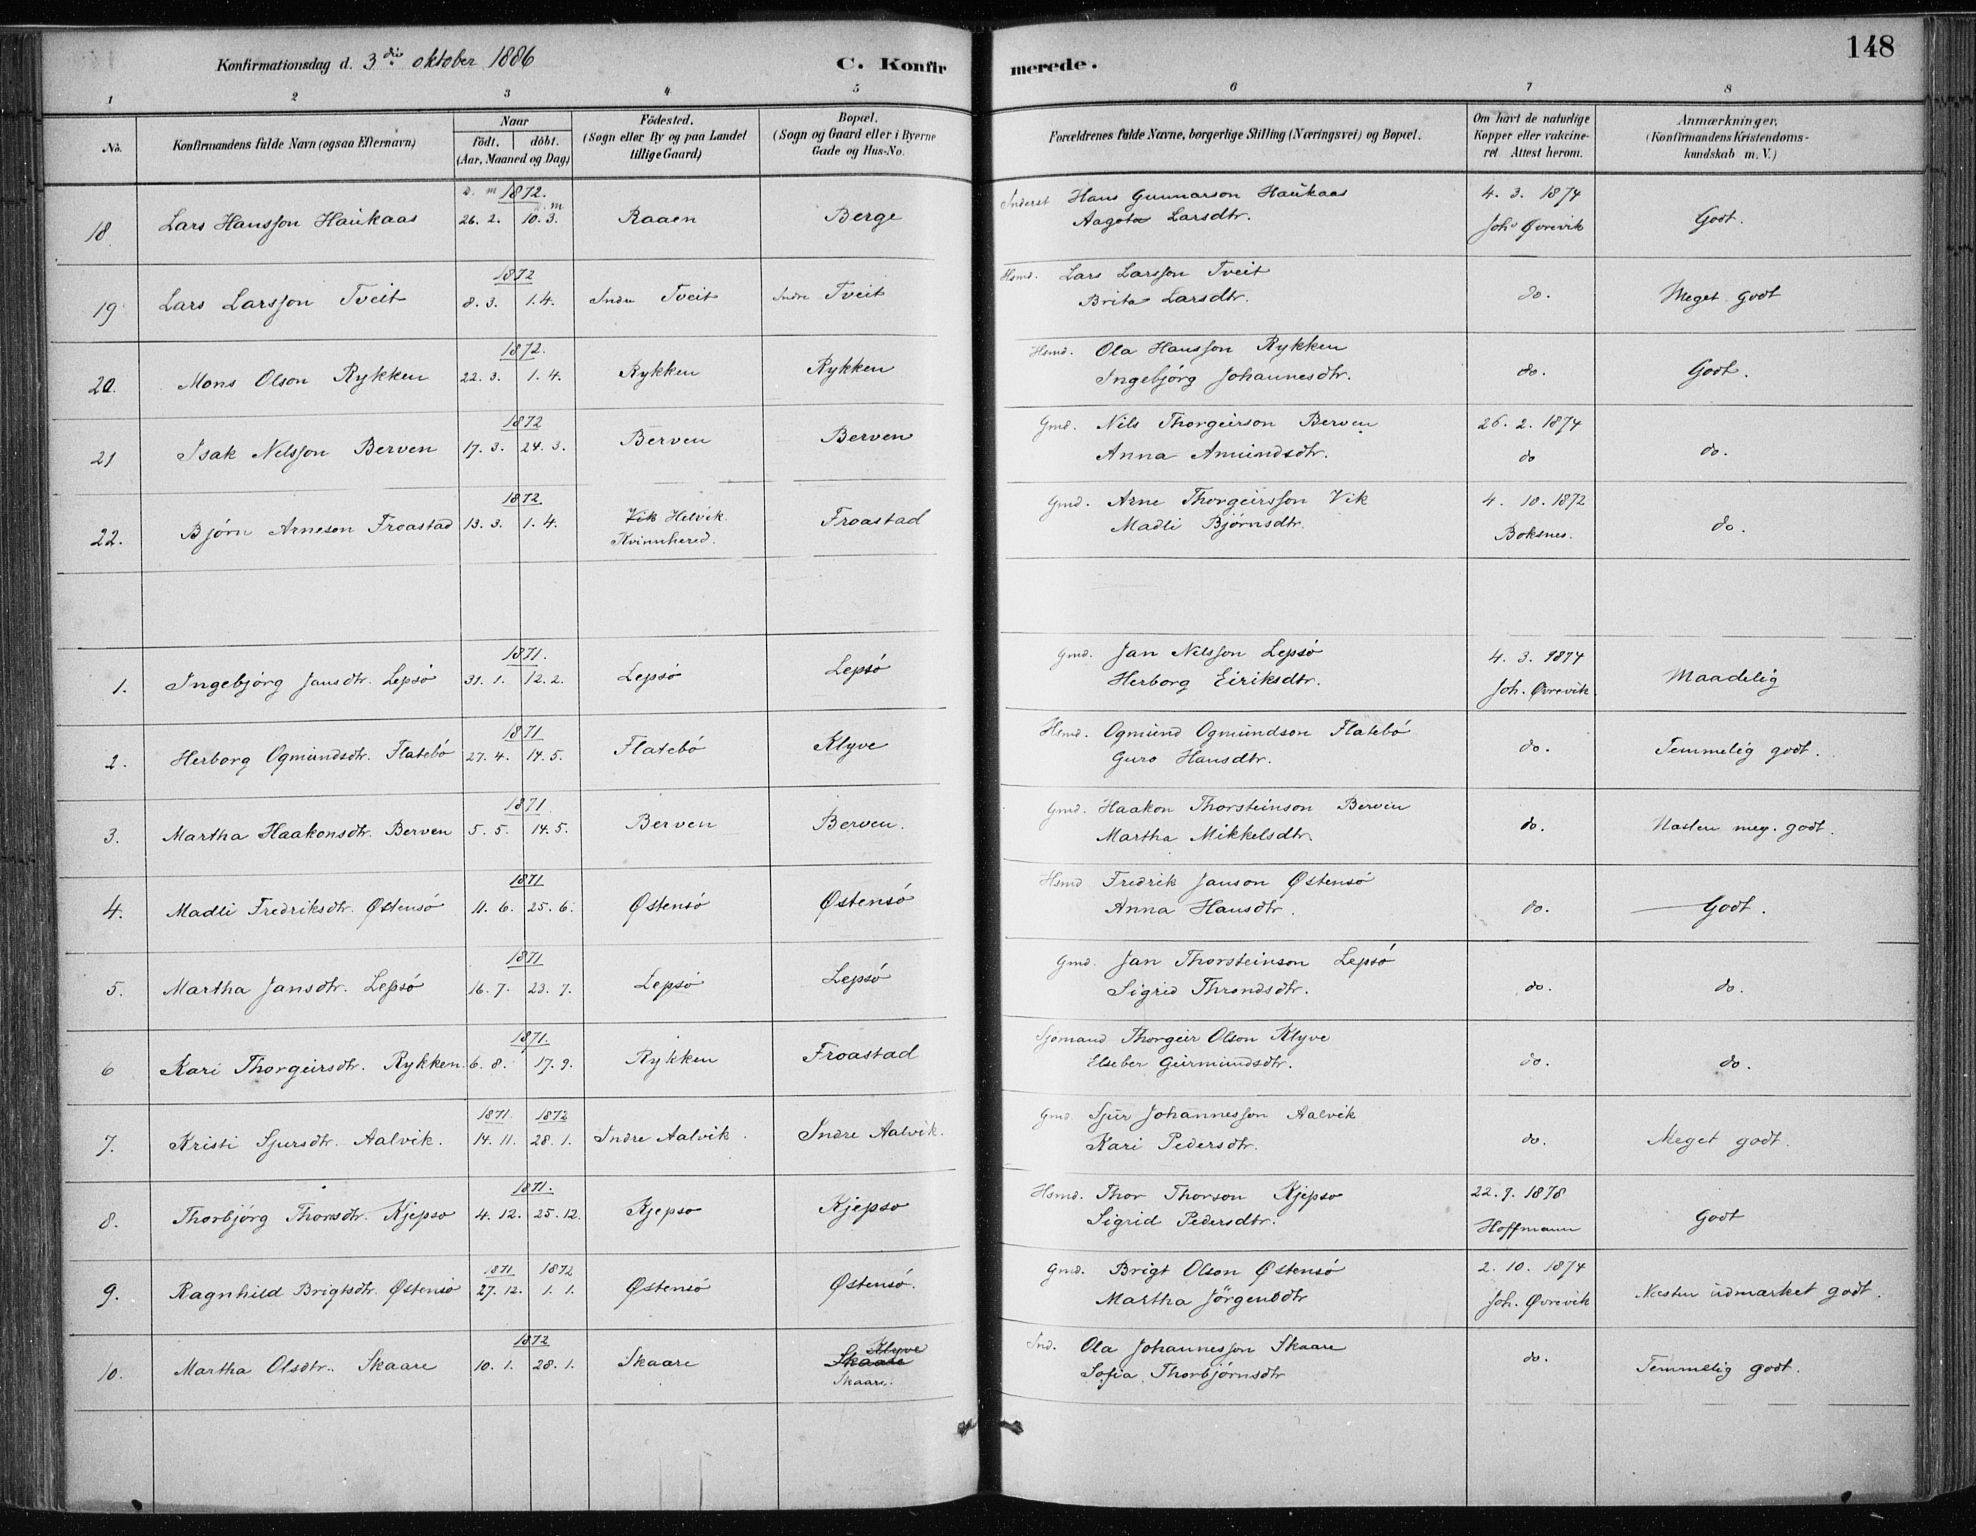 148
Konfirmationsdag d. 3die oktober 1886 C. Konfirmerede.
1 2 3 4 5 6 7 8
No. Konfirmandens fulde Navn (ogsaa Efternavn) Naar födt. döbt. (Aar, Maaned og Dag) Födested. (Sogn eller By og paa Landet tillige Gaard) Bopæl. (Sogn og Gaard eller i Byerne Gade og Hus-No. Forældrenes fulde Navne, borgerlige Stilling (Næringsvei) og Bopæl. Om havt de naturlige Kopper eller vakcineret. Attest herom. Anmærkninger, (Konfirmandens Kristendomskundskab m. V.)
D. m 1872. D. m
18 Lars Hansson Haukaas 26. 2. 10. 3. Raaen Berge Inderst Hans Gunnarson Haukaas 4. 3. 1874 Godt.
Aagota Larsdtr. Joh. Øvrevik
1872
19 Lars Larsson Tveit 8. 3. 1. 4. Indre Tveit Indre Tveit Hsmd. Lars Larsson Tveit do. Meget godt
Brita Larsdtr.
1872.
20. Mons Olson Rykken 22. 3. 1. 4. Rykken Rykken Hsmd. Ola Hansson Rykken do. Godt.
Ingebjórg Johannesdtr.
1872
21 Isak Nelsson Berven 17. 3. 24. 3. Berven Berven Gmd. Nils Thorgeirson Berven 26. 2. 1874 do.
Anna Amundsdtr. do
1872.
22. Bjørn Arneson Froastad 13. 3. 1. 4. Vik Helvik. Froastad Gmd. Arne Thorgeirsson Vik 4. 10. 1872 do.
Kvinnhered. Madli Bjørnsdtr. Boksnes.
1871.
1. Ingebjórg Jansdtr. Lepsó 31. 1. 12. 2. Lepsó Lepsó Gmd. Jan Nelsson Lepsó 4. 3. 1874 Maadelig
Herborg Eiriksdtr. Joh. Øvrevik.
1871
2. Herborg Ogmundsdtr. Flatebó 27. 4. 14. 5. Flatebó Klyve Hsmd. Ogmund Ogmundson Flatebó do. Temmelig godt.
Guro Hansdtr.
1871.
3. Martha Haakonsdtr. Berven 5. 5. 14. 5. Berven Berven. Gmd. Haakon Thorsteinson Berven do. Næsten meg. godt.
Martha Mikkelsdtr.
1871
4. Madli Fredriksdtr. Østensó 11. 6. 25. 6. Østensó Østensó Hsmd Fredrik Janson Østensó do. Godt.
Anna Hansdtr.
1871
5. Martha Jansdtr. Lepsó 16. 7. 23. 7. Lepsó Lepsó Gmd. Jan Thorsteinson Lepsó do. do.
Sigrid Throndsdtr.
1871.
6 Kari Thorgeirsdtr. Rykken. 6. 8. 17. 9. Rykken Froastad Sjømand Thorgeir Olson Klyve do. do.
Elseber Geirmundsdtr.
1871. 1872
7. Kristi Sjursdtr. Aalvik. 14. 11. 28. 1. Indre Aalvik. Indre Aalvik. Gmd. Sjur Johannesson Aalvik do. Meget godt.
Kari Pedersdtr.
1871.
8. Thorbjórg Thorsdtr. Kjepso 4. 12. 25. 12. Kjepso Kjepso Hsmd. Thor Thorson Kjepso 22. 9. 1878 Godt
Sigrid Pedersdtr. Hoffmann
1871. 1872
9. Ragnhild Brigtsdtr. Østensó 27. 12. 1. 1. Østensó Østensó. Gmd. Brigt Olson Østensó 2. 10. 1874 Næsten udmærket godt.
Martha Jórgensdtr Joh. Øvrevik
1872 Klyve
10. Martha Olsdtr. Skaare 10. 1. 28. 1. Skaare Skaare Ind. Ola Johannesson Skaare do. Temmelig godt.
Skaare. Sofia Thorbjórnsdtr